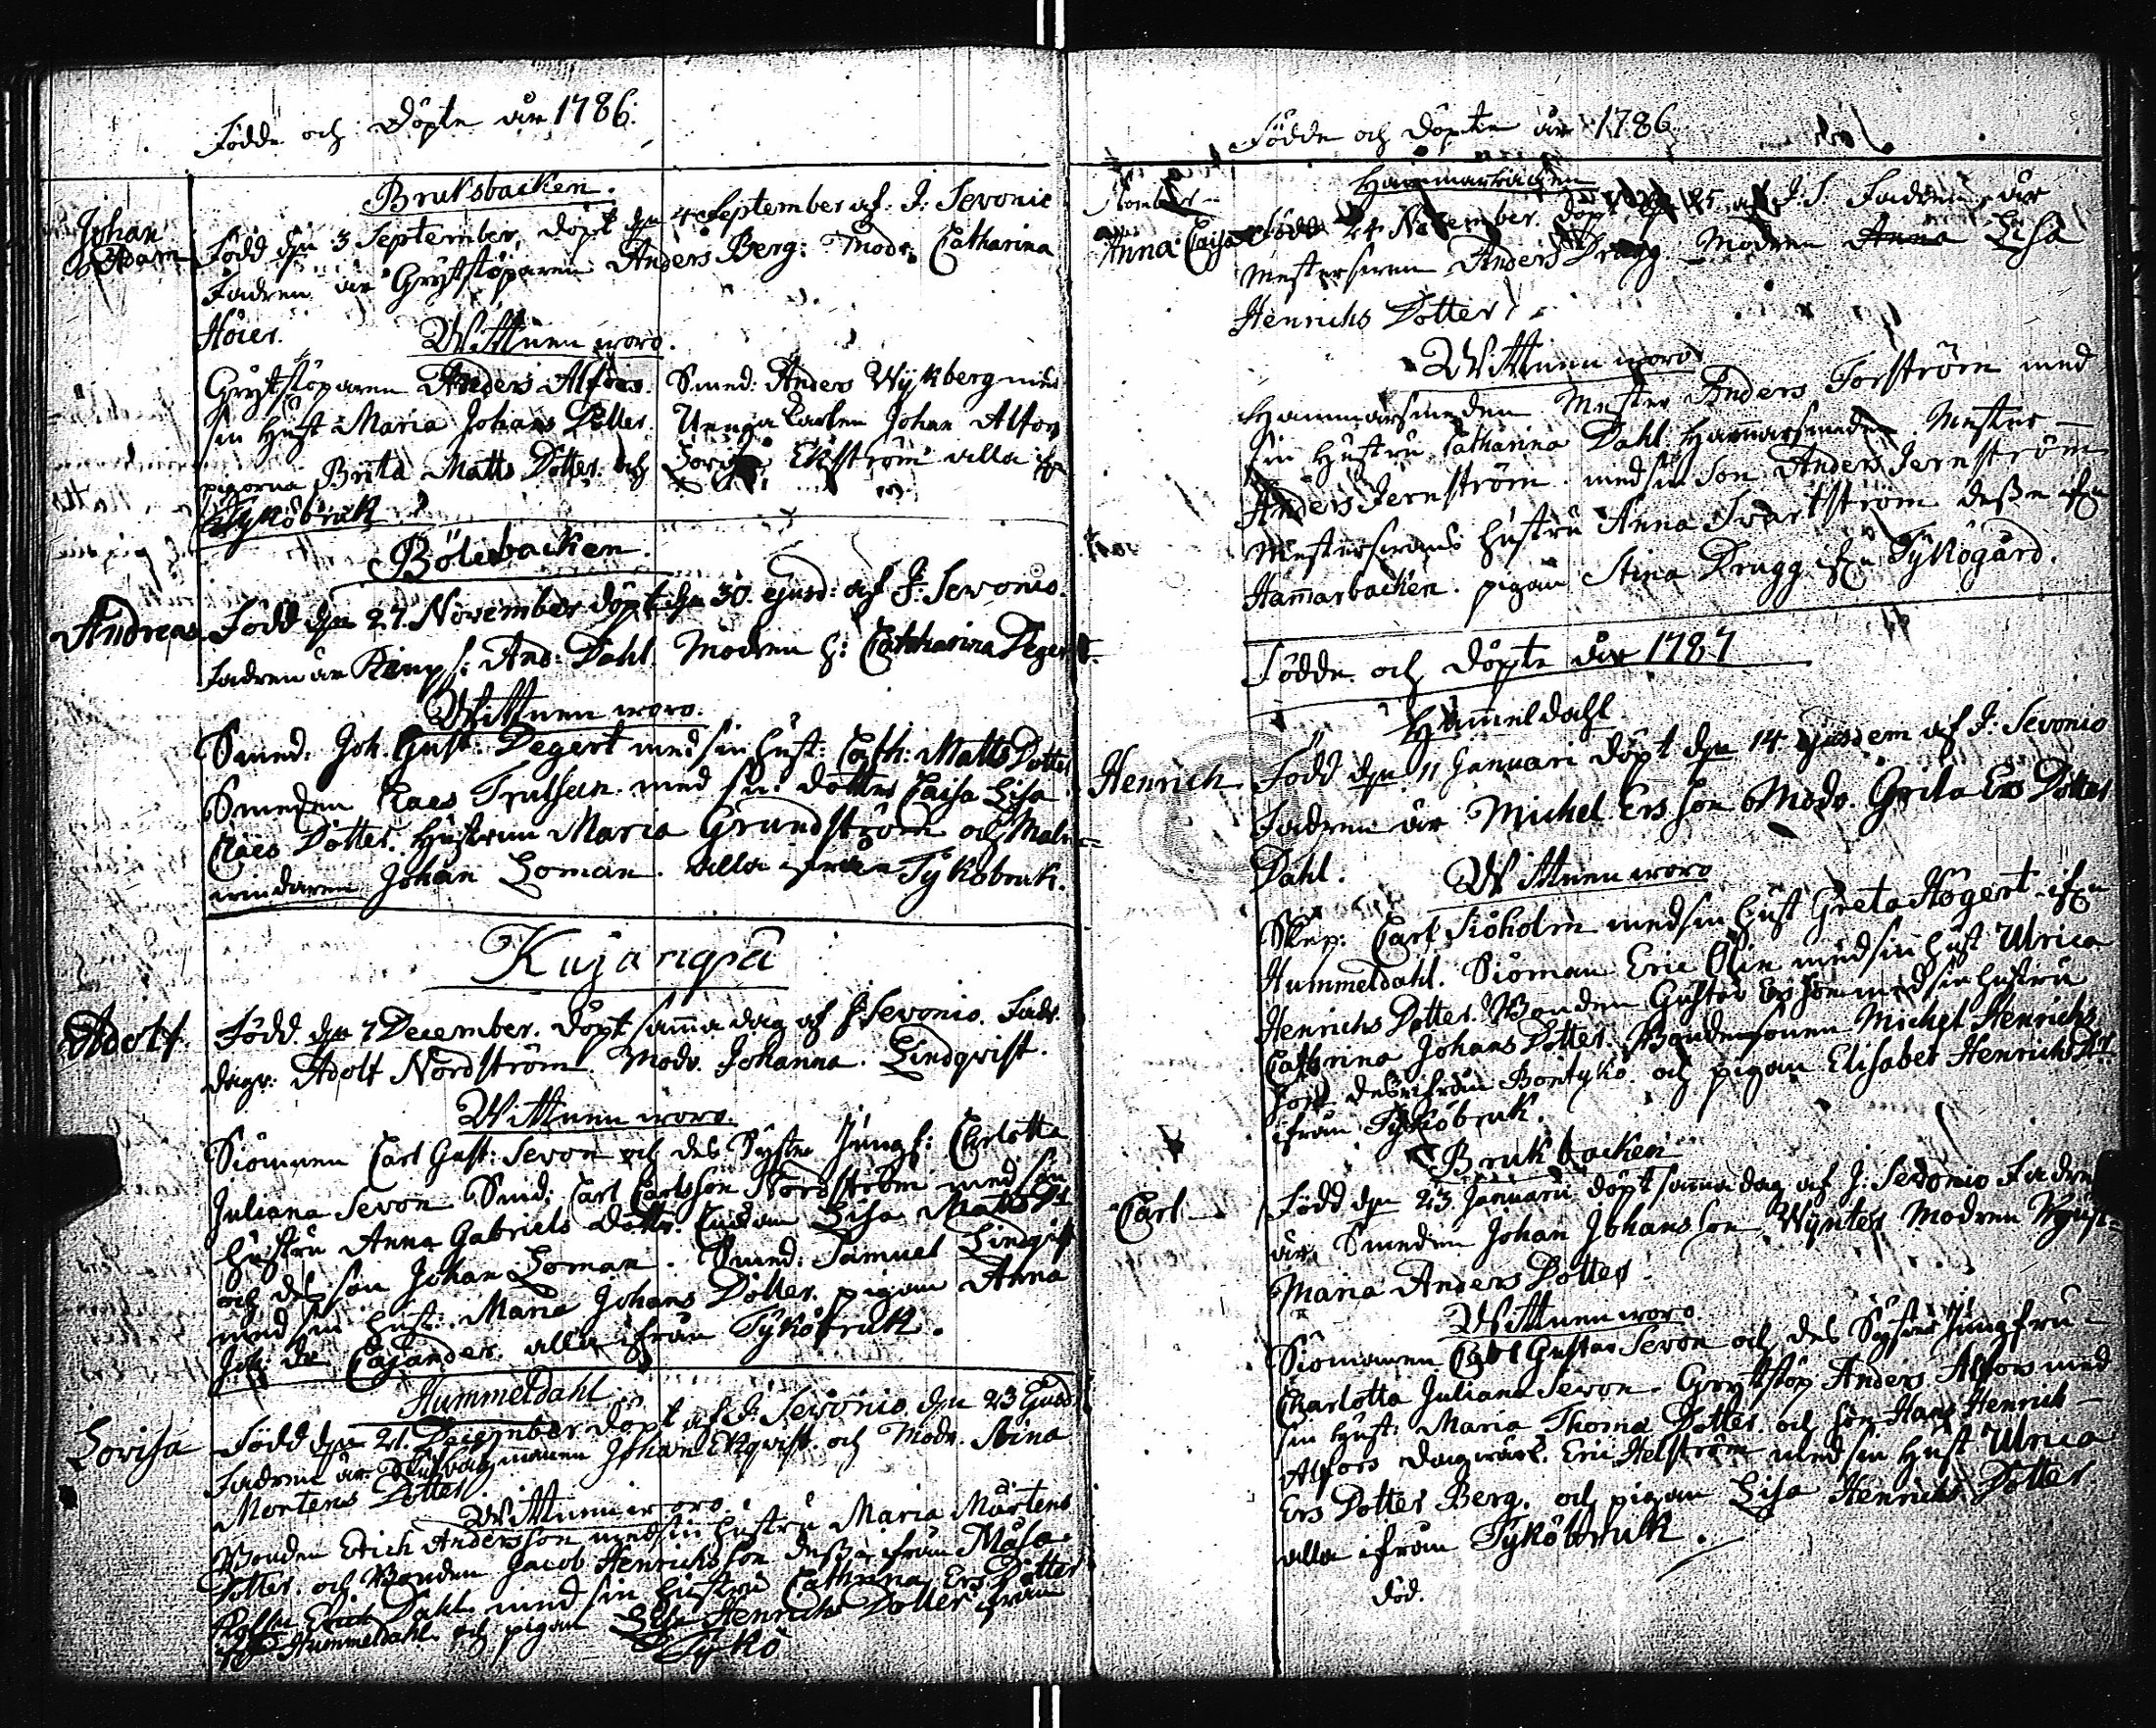 Födde och Döpte år 1786.
Bruksbacken.
Johan
Adam
Född den 3 September, döpt den 4 September af J: Sevonio
Fadren är Grytstöparen Anders Berg: Modr. Catharina
Höier.
Wittnen woro.
Grytstöparen Anders Alfors. Smed: Anders Wykberg med
sin Hust Maria Johans Dotter. Unga Carlen Johan Alfors
pigorna Brita Matts Dotter och Lovisa Ekström alla ifrn
Tykö bruk.
Bölebacken.
Andreas
Född den 27. November döpt den 30. ejusd: af J: Sevonio.
Fadren är And: Dahl. Modren h: Catharina Degert.
Wittnen woro.
Smed: Joh. Gust: Degert med sin hust: Cath: Matts Dotter
Smeden Claes Trulsen med sin dotter Caisa Lisa
Claes Dotter. Hustrun Maria Grundström och Malm=
Johan Loman. alla ifrån Tykö bruk.
Kujanpä
Adolf
Född den 7 December. döpt samma dag af J Sevonio. Fadr.
dagv: Adolf Nordström. Modr. Johanna Lindqvist.
Wittnen woro.
Siömanen Carl Gust: Sevon och des Syster Jungf: Charlotta
Juliana Sevon Smd: Carl Carlsson Nordström med sin
hustru Anna Gabriels dotter. Enkan Lisa Matts Dr
och des son Johan Loman. Smed: Samuel Lindqist
med sin Hust: Maria Johans Dotter. pigan Anna
Cajander. alla ifrån Tykö bruk.
Hummeldahl
Lovisa
Född den 21. December döpt af J: Sevonio den 23 Ejusd
Fadren är Johan Ekqvist. och Modr. Stina
Mortens Dotter.
Wittnen woro.
Bonden Erich Andersson med sin hustru Maria Mårtens
Dotter. och Bonden Jacob Henrichsson desse ifrån Måsa.
Erich Dahl med sin hustru Cathrina Ers Dotter
Hummeldahl. och pigan Lisa Henrichs Dotter ifrån
Tykö
Födde och Döpte år 1786
Hammarbacken
Anna Caisa
Född 24 November. döpt den 25 af J. S. Fadren är
Mestersven Anders Drugg. Modren Anna Lisa
Henrichs Dotter.
Wittnen woro
Hammarsmeden Mester Anders Forström med
sin hustru Catharina Dahl. Hamarsmeden Mester
Anders Jernström med sin Son Anders Jernström
Mestersvens hustru Anna Svartström desse ifrn
Hamarbacken. pigan Stina Drugg ifrn Tykögård.
Födde och Döpte år 1787
Humeldahl
Henrich
Född den 11 Januari döpt den 14 ejusdem af J: Sevonio
Fadren är Michel Ersson Modr. Greta Ers Dotter
Dahl.
Wittnen woro
Skep: Carl Siöholm med sin hust Greta Högert ifrn
Hummeldahl. Siöman Eric Olin med sin hust Ulrica
Henrichs Dotter. Bonden Gustav Ersson med sin hustru
Cathrina Johans Dotter. Bondesonen Michel Henrichs
son desse ifrån Bortykö. och pigan Elisabet Henrichs Dtr
ifrån Tykö bruk.
Bruk backen
Carl
Född den 23 Januarii döpt samma dag af J: Sevonio Fadren
är Smeden Johan Johansson Wynter Modren
Maria Anders Dotter
Wittnen woro.
Siömanen Carl Gustav Sevon och des Syster Jungfru
Charlotta Juliana Sevon. Grytstöp Anders Alfors med
sin hust: Maria Thoma Dotter. och son Hans Henrich
Alfors dagvärk. Eric Helström med sin Hust Ulrica
Ers Dotter Berg. och pigan Lisa Henrichs Dotter
alla ifrån Tykö bruk.
död.